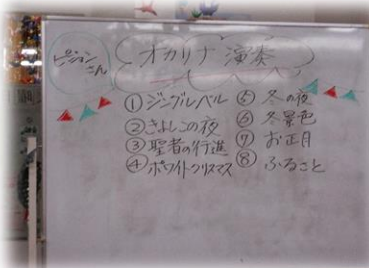 ピジョン
さん
オカリナ 演奏
① ジングルベル
② きよしこの夜
③ 聖者の行進
④ ホワイトクリスマス
⑤ 冬の夜
⑥ 冬景色
⑦ お正月
⑧ ふるさと